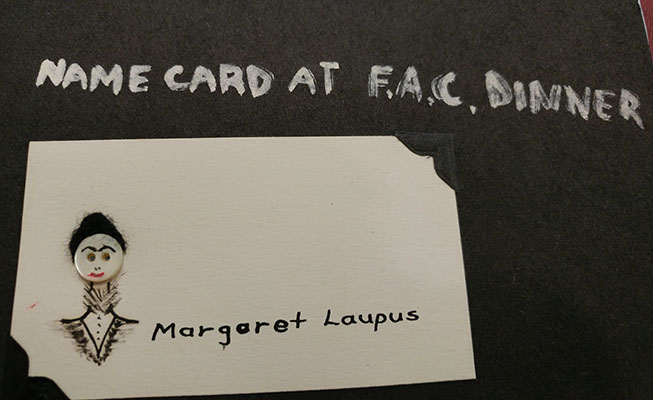 NAME CARD AT F.A.C. DINNER
Margaret Laupus